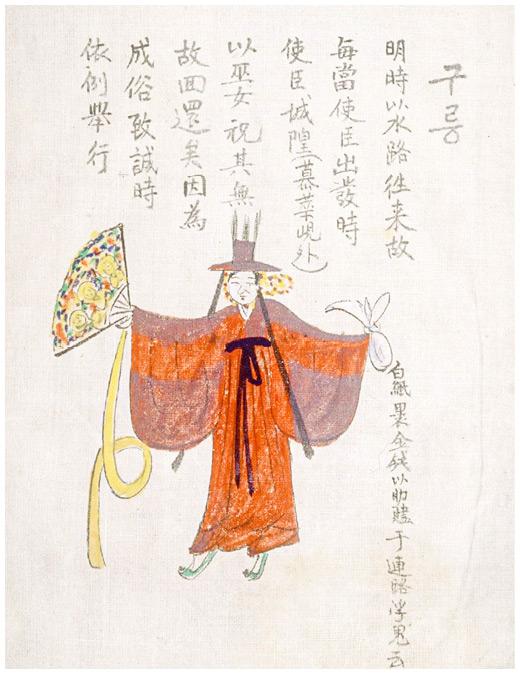 구릉
明時以水路徃来故
每當使臣出發時
使臣城隍(慕華峴外)
以巫女祝其無
故回還矣因為
成俗致誠時
依例舉行
白紙裹金錢以助于連路浮鬼云